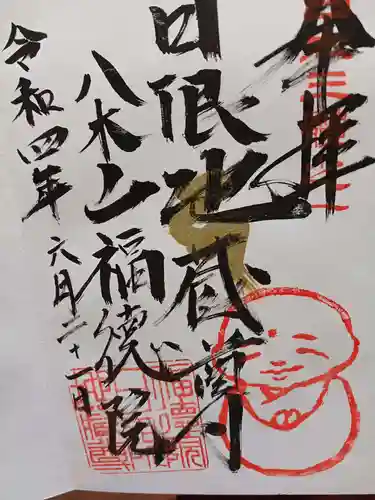 奉拝
日限地蔵尊
八木山福徳院
令和四年
六月二十一日